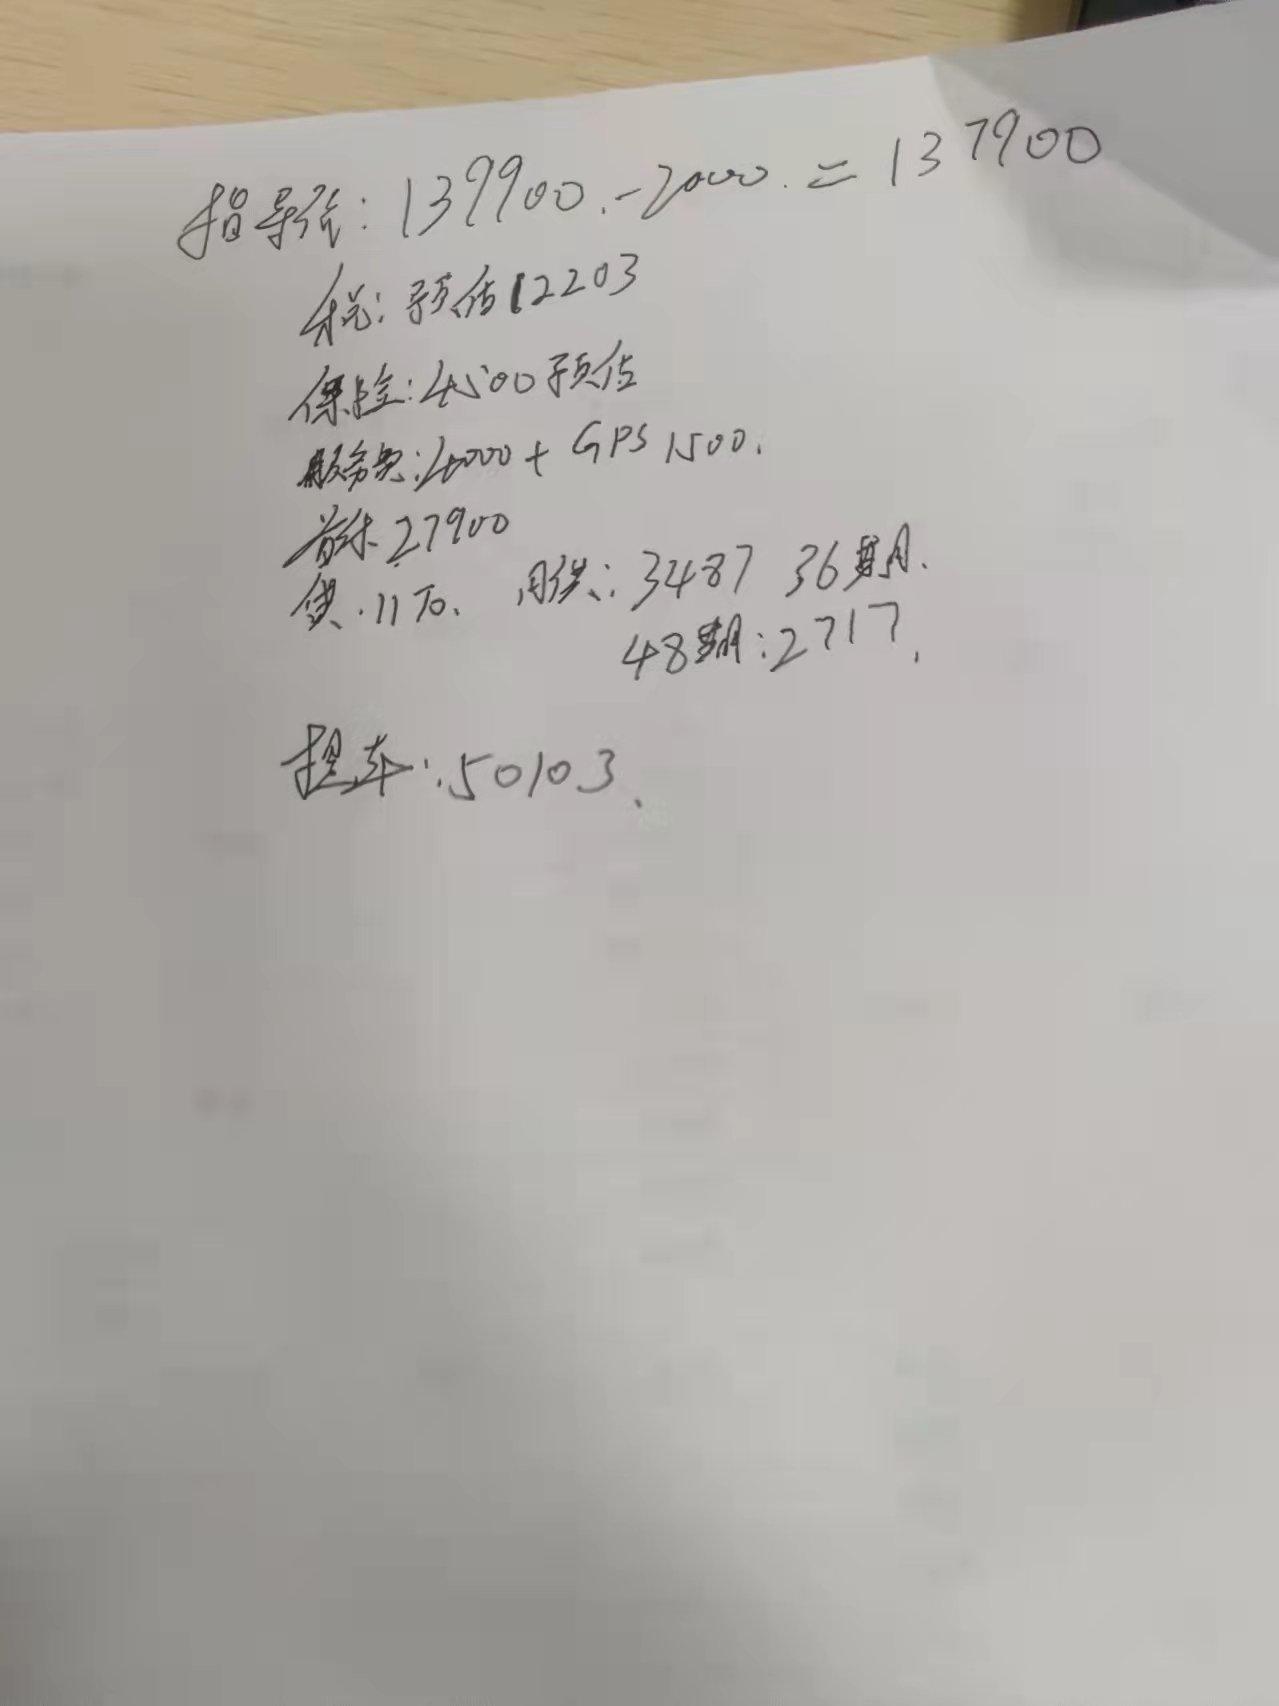 指导价:139900.-2000.=137900
税:预估12203
保险:4500预估
服务费:4000+GPS 1500.
首付.27900
贷.11万. 月供:3487 36期.
48期:2717.
提车:50103.